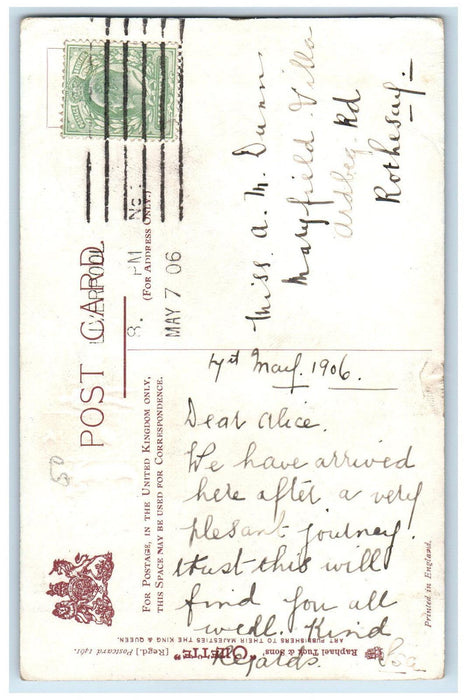 POST CARD
LIVERPOOL
8. PM
MAY 7 06
(FOR ADDRESS ONLY.)
FOR POSTAGE, IN THE UNITED KINGDOM ONLY,
THIS SPACE MAY BE USED FOR CORRESPONDENCE.
Miss A. M. Dunn
Maryfield Villa
Ardbeg Rd
Rothesay.
7th May. 1906.
Dear Alice.
We have arrived
here after a very
plesant journey.
trust this will
find you all
well. Kind
Regards.
Raphael Tuck & Sons
"OILETTE" [Regd.] Postcard 1461.
ART PUBLISHERS TO THEIR MAJESTIES THE KING & QUEEN.
Printed in England.
50